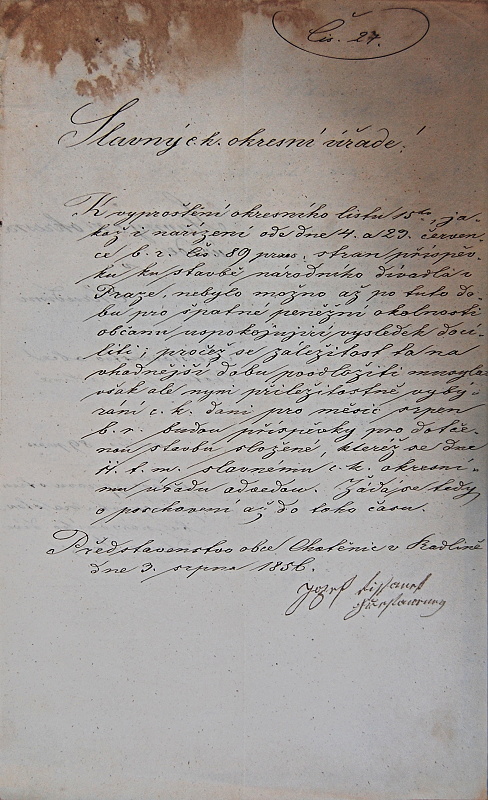 Čís. 27.
Slavný c. k. okresní úřade!
K vyproštění okresního listu 15ho, ja-
kož i nařízení ode dne 4. a 23. červen-
ce b. r. čís 89 praes. stran příspěv-
ků ku stavbě národního divadla v
Praze, nebylo možno až po tuto do-
bu pro špatné peněžní okolnosti
občanů uspokojující výsledek docí-
liti; pročež se záležitost ta na
vhodnější dobu poodložiti musyla
však ale nyní příležitostně vybý-
rání c. k. daní pro měsíc srpen
b. r. budou příspěvky pro dotče-
nou stavbu složené, kteréž se dne
t. m. slavnému c. k. okresní-
mu úřadu odvedou. Žádá se tedy
o poschovení až do toho času.
Představenstvo obce Chotěnic v Radlíně
dne 3. srpna 1856.
Jozef